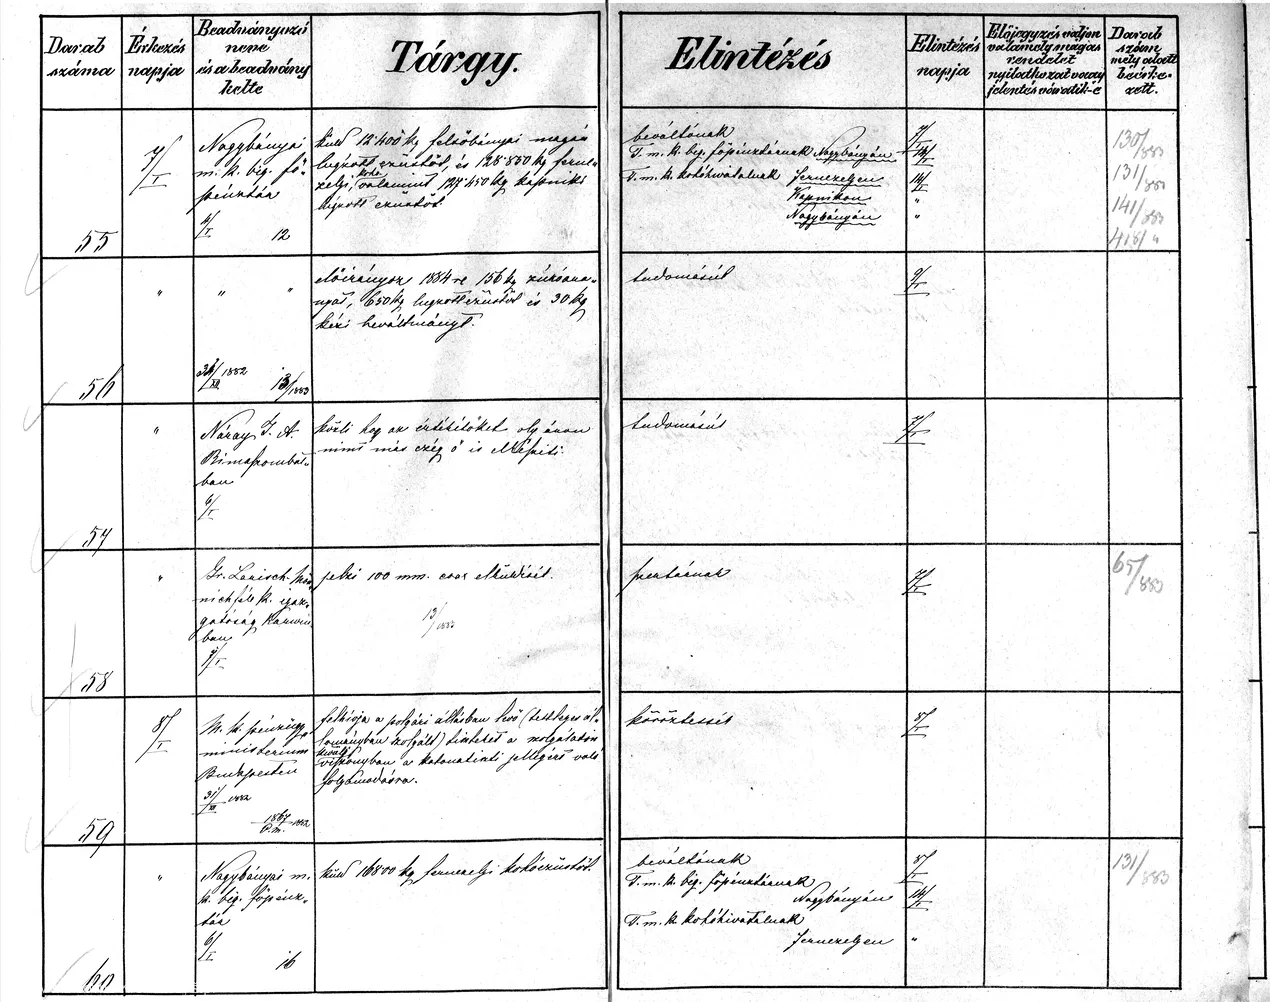 Darab száma
Érkezés napja
Beadványozó neve és a beadvány kelte
Tárgy.
Elintézés
Elintézés napja
Előjegyzés váljon valamely magas rendelet nyilatkozat vagy jelentés vonatik-é
Darab szám mely alatt beérkezett.
55
7/I
Nagybányai
m. k. big. fő-
pénztár
4/I 12
küld 12·400 kg felsőbányai
lugzott ezüstöt, és 128·850 kg
valamint 127·450 kg kapniki
lugzott ezüstöt
beváltónak 7/I
T. m. k. big. főpénztárnak Nagybányán 14/I
T. m. k. kohóhivatalnak Fernezelyen 14/I
Kapnikon "
Nagybányán "
130/883
131/883
141/883
418/ "
56
" " "
31/XII 1882 13/1883
előirányoz 1884-re 156 kg
650 kg lugzott ezüstöt és 30 kg
kézi beváltmányt.
tudomásúl 9/I
57
"
Náray I. A.
Rimaszombat-
ban
6/I
közli hogy az értesítőket oly áron
mint más czég ő is
tudomásúl 7/I
58
"
Gr. Larisch-Mön-
nich féle k. igaz-
gatóság Karwin-
ban
5/I
jelzi 100 mm. elküldését.
13/883
pertárnak 7/I
65/883
59
8/I
M. k. pénzügy-
ministerium
Budapesten
31/XII 1882
1867/P.m. 1882
felhívja a polgári állásban levő (tettleges ál-
lományban szolgált) tiszteket a szolgálaton
kivüli
viszonyban a katonatiszti jellegért való
folyamodásra.
köröztessék 8/I
60
"
Nagybányai m.
k. big. főpénz-
tár
6/I 16
küld 16800 kg fernezelyi kohóezüstöt.
beváltónak 8/I
T. m. k. big. főpénztárnak
Nagybányán 14/I
T. m. k. kohóhivatalnak
Fernezelyen "
131/883